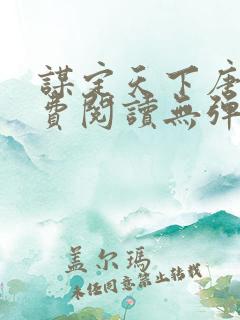 謀定天下唐
費閱讀無彈
盖尔瑪
未经同意禁止转载